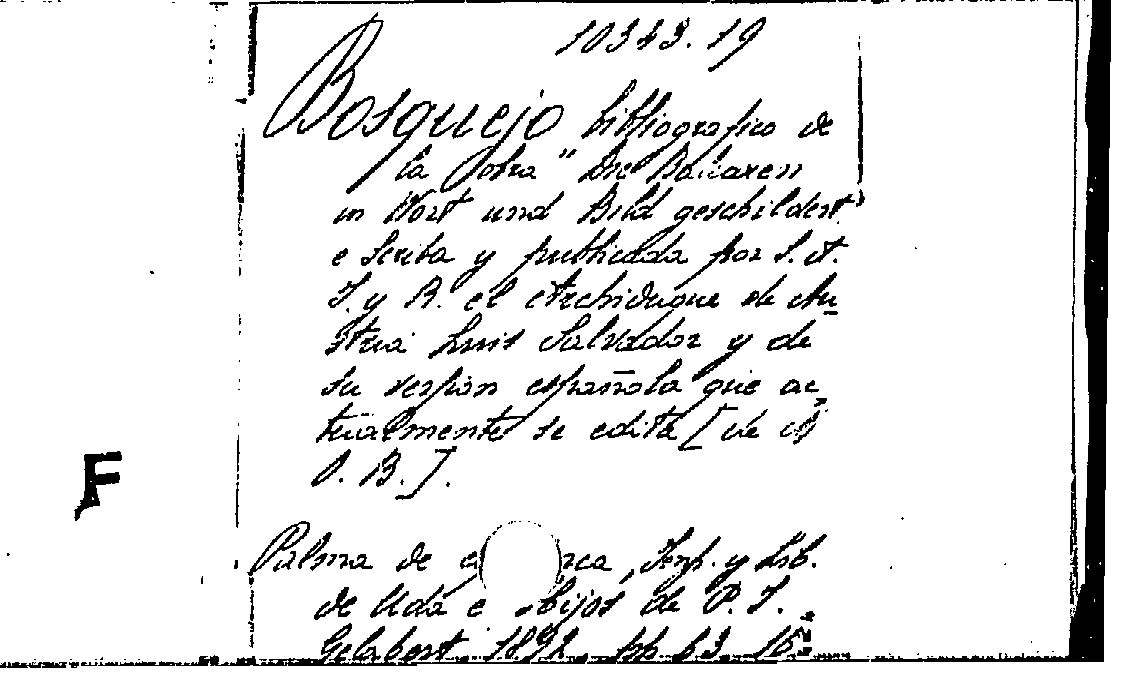 10343.19
Bosquejo bibliografico de
la obra "Die Balearen
in Wort und Bild geschildert"
escrita y publicada por S. A.
I. y R. el Archiduque de Au=
stria Luis Salvador y de
su version española que ac=
tualmente se edita [de
P. B.].
F
Palma de rca, Imp. y Lib.
de Vda e Hijos de P. J.
Gelabert, 1892, pp 63, 16º